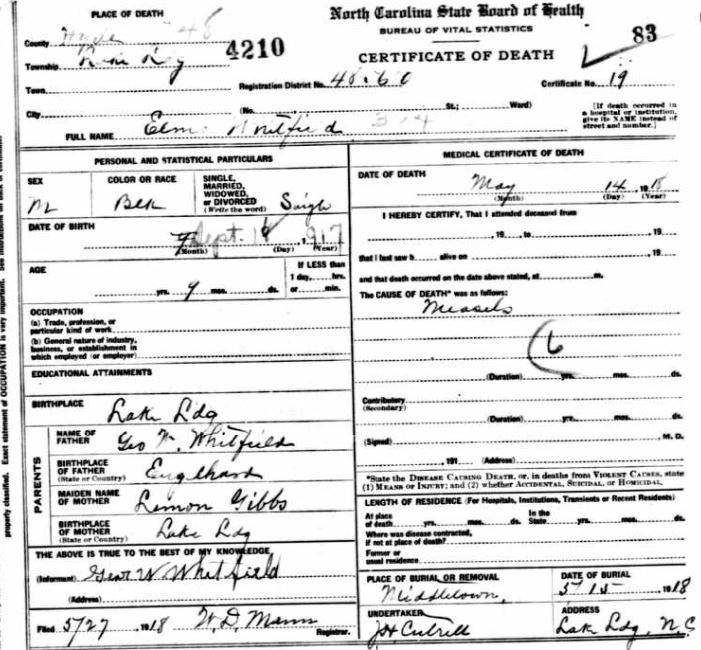 PLACE OF DEATH
North Carolina State Board of Health
BUREAU OF VITAL STATISTICS
CERTIFICATE OF DEATH
83
County Hyde 48
4210
Township Lake Ldg
Town
Registration District No. 48-60
Certificate No. 19
City (No. St.; Ward)
[If death occurred in a hospital or institution, give its NAME instead of street and number.]
FULL NAME Whitfield 314
PERSONAL AND STATISTICAL PARTICULARS
SEX M
COLOR OR RACE Blk
SINGLE, MARRIED, WIDOWED, or DIVORCED (Write the word) Single
DATE OF BIRTH
Sept. 1917
(Month) (Day) (Year)
AGE
yrs. 9 mos. ds.
If LESS than
1 day, hrs.
or min.
OCCUPATION
(a) Trade, profession, or
particular kind of work
(b) General nature of industry,
business, or establishment in
which employed (or employer)
EDUCATIONAL ATTAINMENTS
BIRTHPLACE Lake Ldg
PARENTS
NAME OF FATHER Geo W. Whitfield
BIRTHPLACE OF FATHER (State or Country) Englhard
MAIDEN NAME OF MOTHER Lemon Gibbs
BIRTHPLACE OF MOTHER (State or Country) Lake Ldg
THE ABOVE IS TRUE TO THE BEST OF MY KNOWLEDGE
(Informant) Geo W Whitfield
(Address)
Filed 5/27, 1918 W. D. Mann
Registrar.
MEDICAL CERTIFICATE OF DEATH
DATE OF DEATH
May 14 1918
(Month) (Day) (Year)
I HEREBY CERTIFY, That I attended deceased from
, 19 , to , 19
that I last saw h alive on , 19
and that death occurred on the date above stated, at m.
The CAUSE OF DEATH* was as follows:
Measels
6
(Duration) yrs. mos. ds.
Contributory
(Secondary)
(Duration) yrs. mos. ds.
(Signed) , M. D.
, 191 (Address)
*State the DISEASE CAUSING DEATH, or, in deaths from VIOLENT CAUSES, state
(1) MEANS OF INJURY; and (2) whether ACCIDENTAL, SUICIDAL, OR HOMICIDAL.
LENGTH OF RESIDENCE (For Hospitals, Institutions, Transients or Recent Residents)
At place of death yrs. mos. ds. In the State yrs. mos. ds.
Where was disease contracted,
if not at place of death?
Former or
usual residence
PLACE OF BURIAL OR REMOVAL
Middletown,
DATE OF BURIAL
5/15 1918
UNDERTAKER
ADDRESS
Lake Ldg, N.C
properly classified. Exact statement of OCCUPATION is very important.